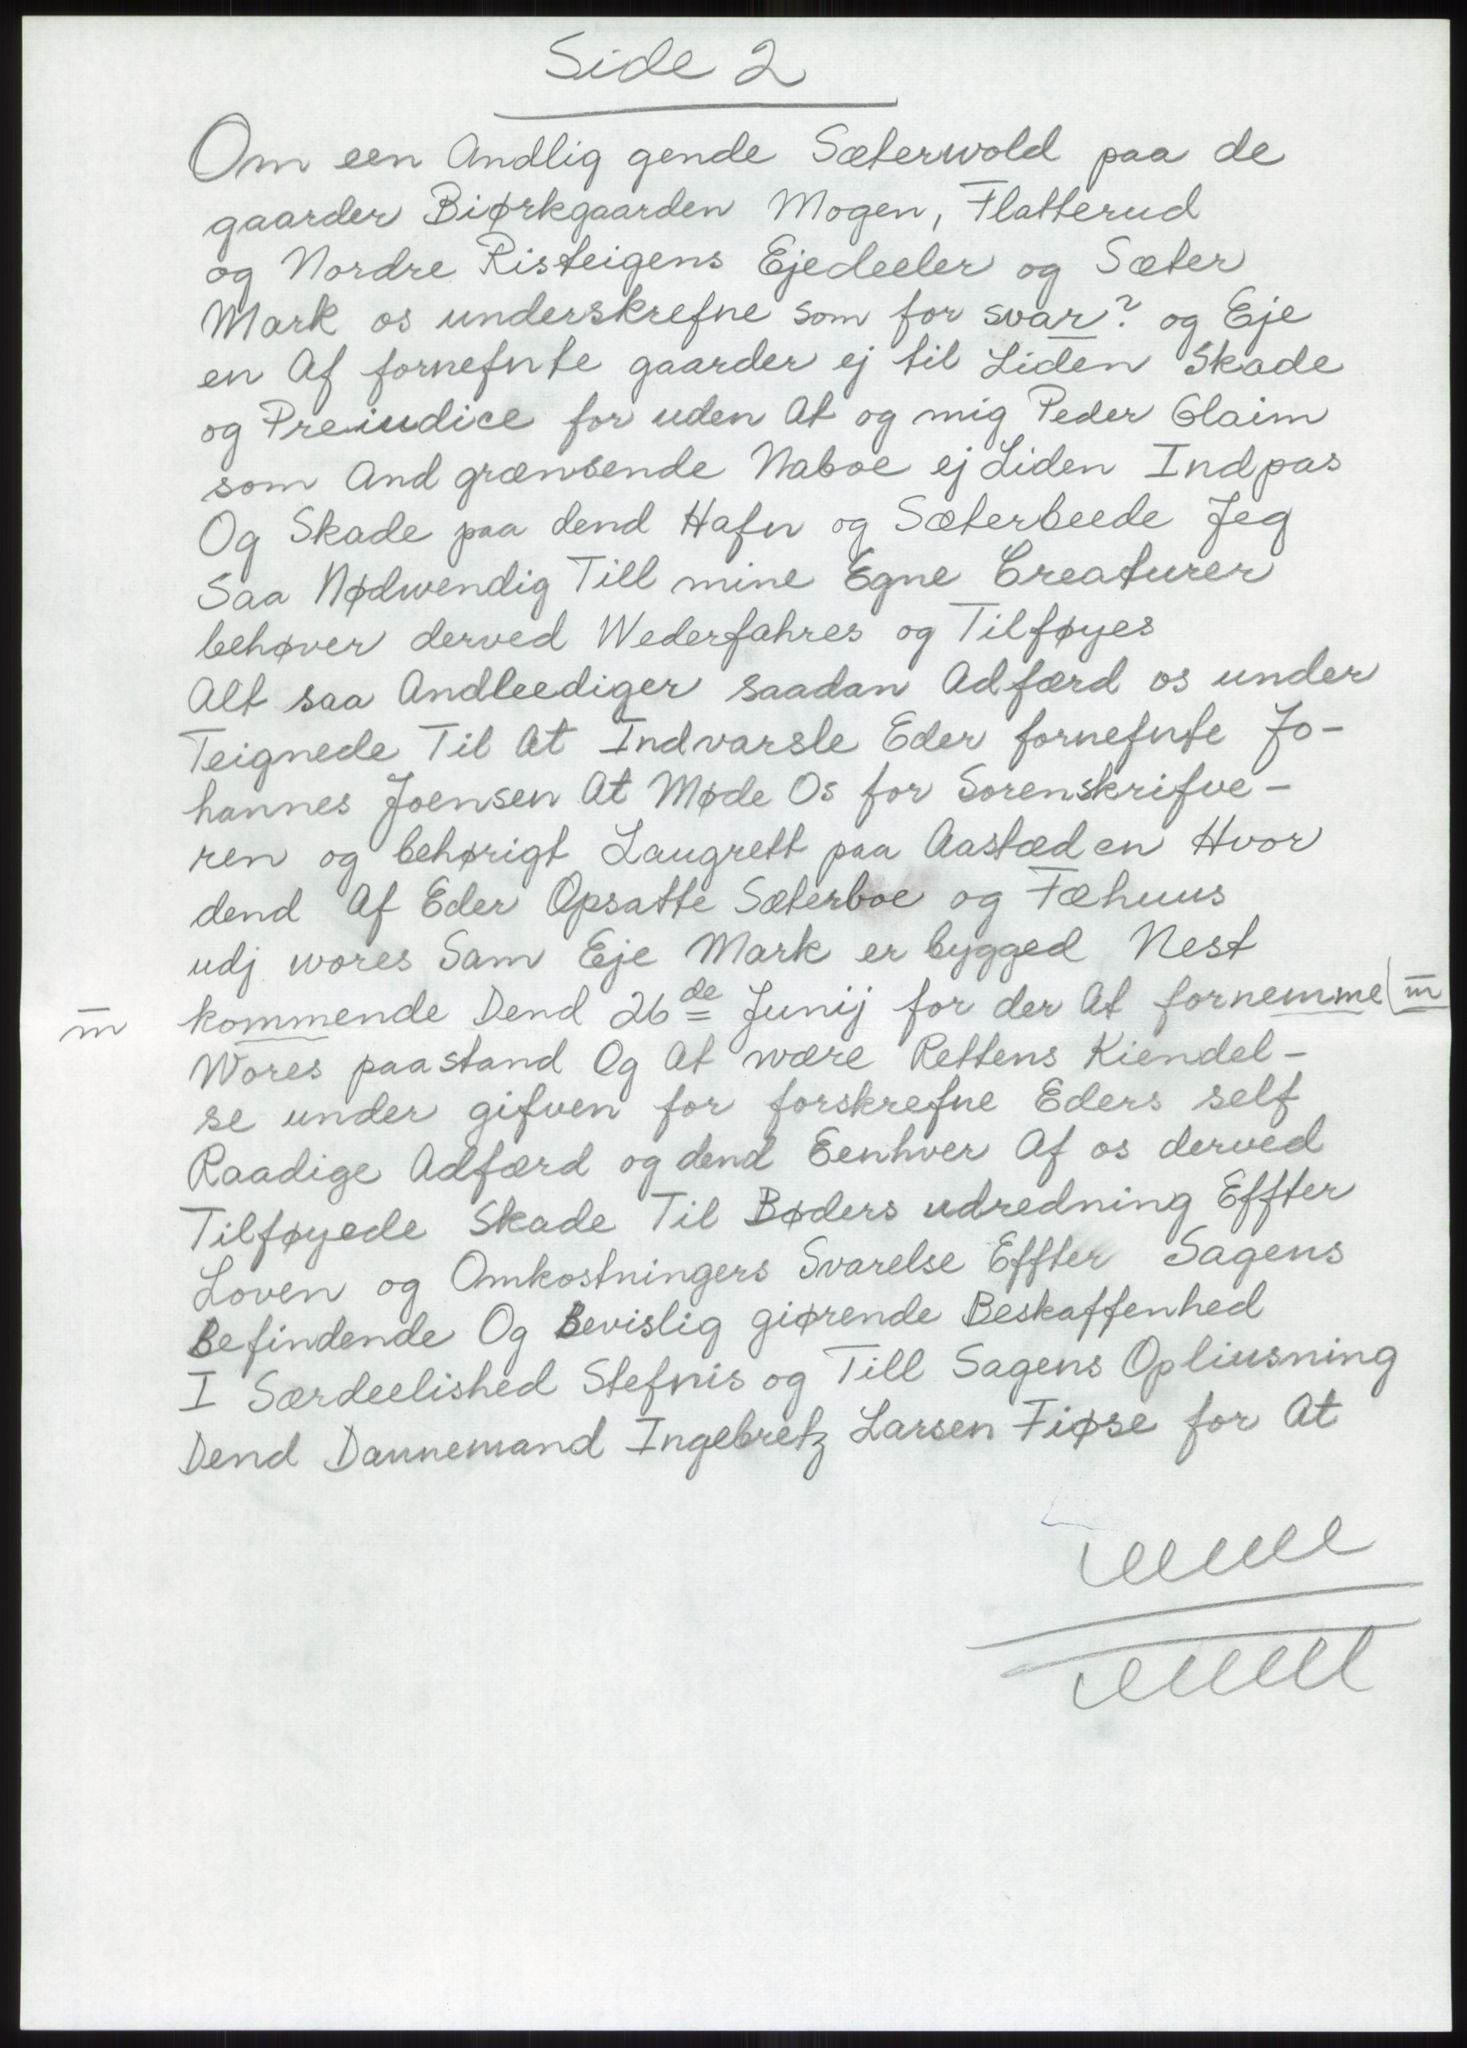 Side 2
Om een Andlig gende Sæterwold paa de
gaarder Biørkgaarden Mogen, Flatterud
og Nordre Risteigens Ejedeeler og Sæter
Mark os underskrefne som for svar? og Eje
en Af fornefnte gaarder ej til Liden Skade
og Preiudice for uden At og mig Peder Glaim
som And grænsende Naboe ej Liden Indpas
Og Skade paa dend Hafn og Sæterbeede Jeg
Saa Nødwendig Till mine Egne Creaturer
behøver derved Wederfahres og Tilføyes
Alt saa Andleediger saadan Adfærd os under
Teignede Til At Indvarsle Eder fornefnte Jo-
hannes Joensen At Møde Os for Sorenskrifve-
ren og behørigt Laugrett paa Aastæden Hvor
dend Af Eder Opsatte Sæterboe og Fæhuus
udj wores Sam Eje Mark er bygged Nest
m̅ kommende Dend 26de Junij for der At fornemme (m̅
Wores paastand Og At wære Rettens Kiendel-
se under gifven for forskrefne Eders self
Raadige Adfærd og dend Eenhver Af os derved
Tilføyede Skade Til Bøders udredning Effter
Loven og Omkostningers Svarelse Effter Sagens
Befindende Og Bevislig giørende Beskaffenhed
I Særdeelished Stefnis og Till Sagens Opliusning
Dend Dannemand Ingebretz Larsen Fiøse for At